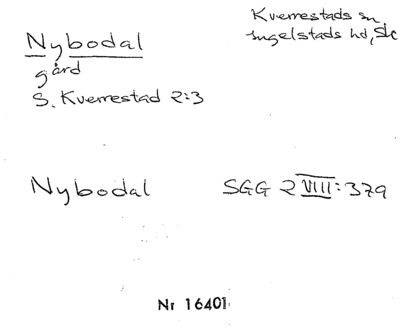 Nybodal
gård
S. Kverrestad 2:3
Kverrestads sn
Ingelstads hd, Sk
Nybodal SGG 2 VIII:379
Nr 16401